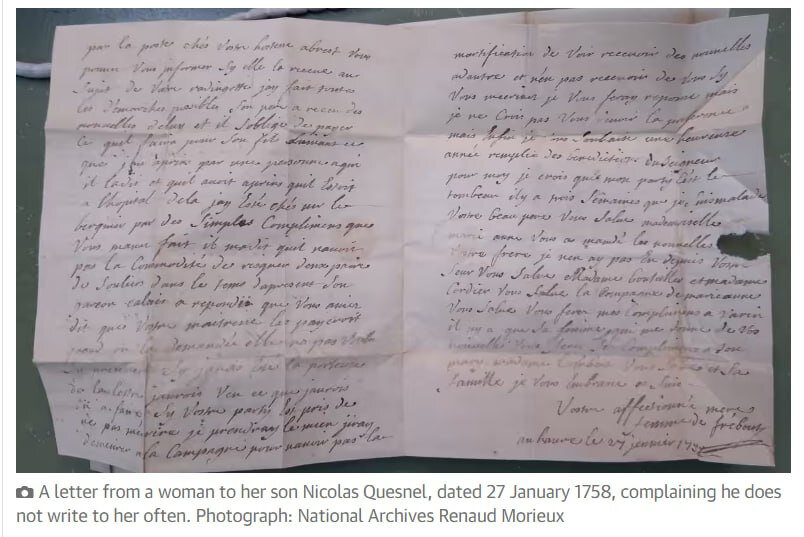 par la poste chés Vostre hostesse abrest vous
pouves Vous informer sy elle la recue au
Sujet de Votre redingotte jay fait toutes
les d'marches posibles Son pere a recu des
nouvelles deluy et il soblige de payer
ce quil faira pour Son fit
que jay apris par une personne aqui
il la dit et quil avoit apris quil Estoit
a l'hopital dela jay Esté chés mr le
berquier par des Simples Complimens que
Vous maves fait il ma dit quil navoit
pas la Commodité de risquer deux paire
de Souliers dans le tems d'apresent Son
garcon a repondu que Vous aviez
dit que Votre maitresse les payeroit
quand on la demandée elle na pas voulu
Sy janes Esté la porteuse
de la lettre jaurois Veu ce que jaurois
a faire Sy Vostre party Est pris de
ne pas je prendray le mien jiray
demeurer a la Campagne pour navoir pas la
mortification de Voir recevoir des nouvelles
adautre et nen pas recevoir de Vous Sy
Vous mecrives je Vous feray reponse mais
je ne Crois pas Vous d'avoir la preference
mais Enfin je Vous Souhaite une heureuse
année remplie des benedictions du Seigneur
pour moy je crois que mon party Est le
tombeau il y a trois Semaines que je suis malade
Votre beau pere Vous Salue mademoiselle
marie anne Vous a mandé les nouvelles
Votre frere je nen ay pas Eu depuis Votre
Seur Vous Salue Madame et madame
Cordier Vous Salue la Compagne
Vous Salue Vous feres mes Complimens a Varin
il ny a que Sa femme qui me donne de Vos
nouvelles Vous feres Ses Complimens a Son
mary madame Vous Salue et Sa
famille je Vous Embrasse et Suis
Vostre affectionné mere
femme de frebourg
au havre le 27 jenvier
A letter from a woman to her son Nicolas Quesnel, dated 27 January 1758, complaining he does
not write to her often. Photograph: National Archives Renaud Morieux